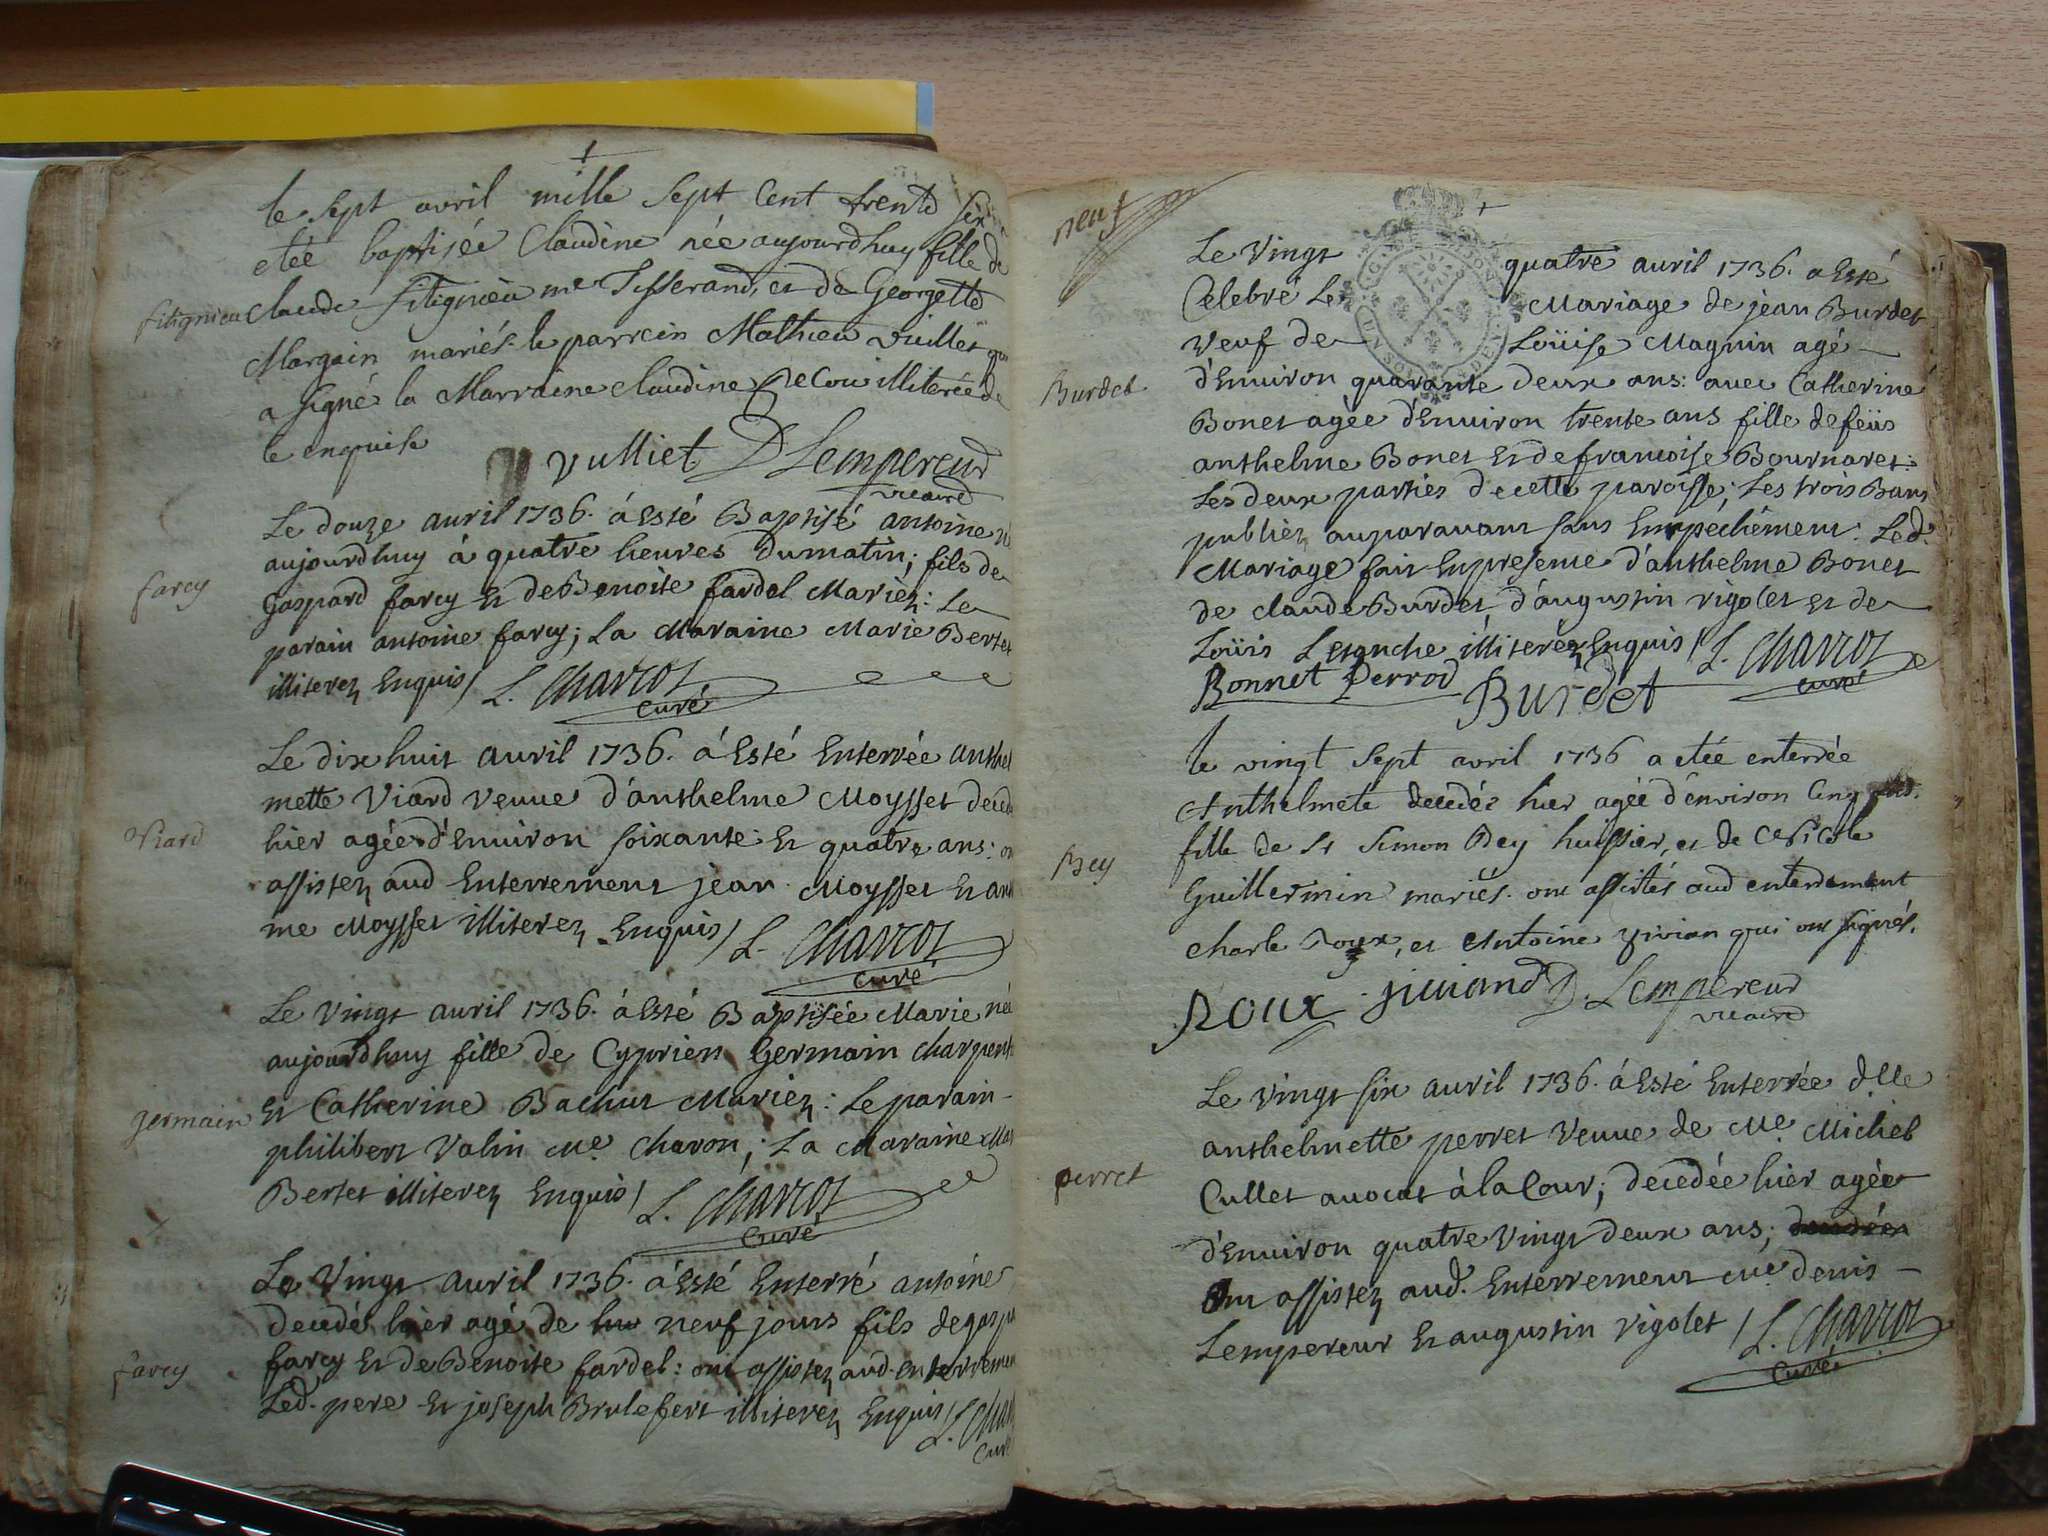 le sept avril mille sept Cent trente six
etée baptisée Claudine née aujourdhuy fille de
filignieu
Claude filignieu me Tisserand, et de Georgette
Margain mariés. le parrein Mathieu Vuillet qui
a signé la Marraine Claudine illiterée de
le enquise
Vulliet D Lempereur
vicaire
Le douze auril 1736. á Esté Baptisé antoine né
aujourdhuy á quatre heures du matin; fils de
farcy
Gaspard farcy Et de Benoite fardel Mariez: Le
parain antoine farcy; La Maraine Marie Bertet
illiterez Enquis / L. Charcot
curé
Le dix huit auril 1736. á Esté Enterrée anthel
mette Viard Veuue d'anthelme Moysset
Viard
hier agée d'Enuiron soixante Et quatre ans:
assistez aud Enterrement jean Moysset Et
me Moysset illiterez Enquis / L. Charcot
curé
Le Vingt auril 1736. á Esté Baptisée Marie née
aujourdhuy fille de Cyprien Germain Charpent
germain
Et Catherine Bachut Mariez: Le parain
philibert Valin Me. Charon; La Maraine Mar
Bertet illiterez Enquis / L. Charcot
Curé
Le Vingt auril 1736. á Esté Enterré antoine
decedé hier agé de neuf jours fils de gasp
farcy
farcy Et de Benoite fardel: ont assistez aud. enterremen
Led. pere Et joseph Brulefert illiterez Enquis / L. Cha
Curé
neuf
Le Vingt quatre auril 1736. a Esté
Celebré Le Mariage de jean Burdet
Veuf de Loüise Magnin agé
Burdet
d'Enuiron quarante deux ans: auec Catherine
Bonet agée d'Enuiron trente ans fille de feüs
anthelme Bonet Et de francoise Bournaret:
Les deux parties de cette paroisse; Les trois Bans
publiez auparauant sans Empéchément: Led.
Mariage fait En presence d'anthelme Bonet
de claude Burdet d'augustin vigolet et de
Loüis Lesanche illiterez Enquis / L. Charcot
curé
Bonnet Perrod Burdet
le vingt sept avril 1736 a etée enterrée
Anthelmete decedée hier agée d'environ Cinq ans.
Bey
fille de Sr Simon Bey huissier, et de
Guillermin mariés. ont assistés aud enterrement
charle Roux, et Antoine vivian qui ont signés.
Roux viuiand D. Lempereur
vicaire
Le Vingt six auril 1736. á Esté Enterrée dlle
anthelmette perret Veuue de Me. Michel
perret
Cullet auocat á la Cour; decedée hier agée
d'Enuiron quatre Vingt deux ans;
Ont assistez aud. Enterrement me. denis
Lempereur Et augustin vigolet / L. Charcot
Curé